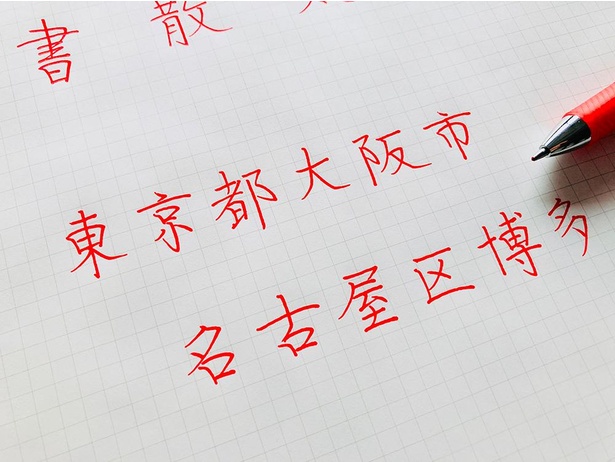 書散
東京都大阪市
名古屋区博多